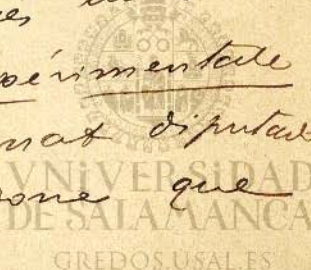 es
périmentale
nat diputad
one que
VNiVERSiDAD
DE SALAMANCA
GREDOS.USAL.ES